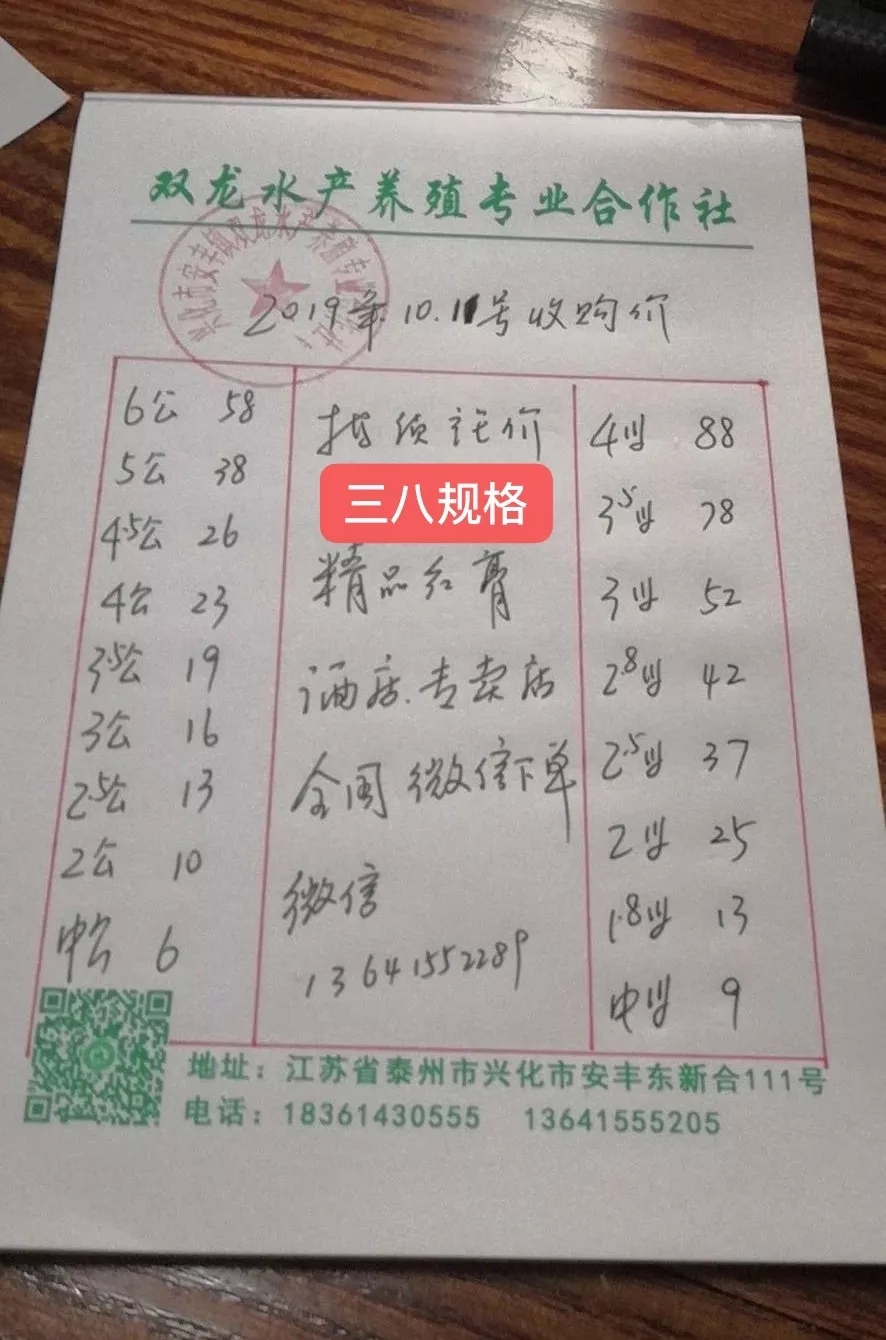 双龙水产养殖专业合作社
兴化市安丰镇双龙水产养殖专业
2019年.10.11号收购价
6公 58
5公 38
4.5公 26
4公 23
3.5公 19
3公 16
2.5公 13
2公 10
中公 6
价
三八规格
精品红膏
酒店.专卖店
全国微信下单
微信
13641552289
4山 88
3.5山 78
3山 52
2.8山 42
2.5山 37
2山 25
1.8山 13
中山 9
地址：江苏省泰州市兴化市安丰东新合111号
电话：18361430555 13641555205